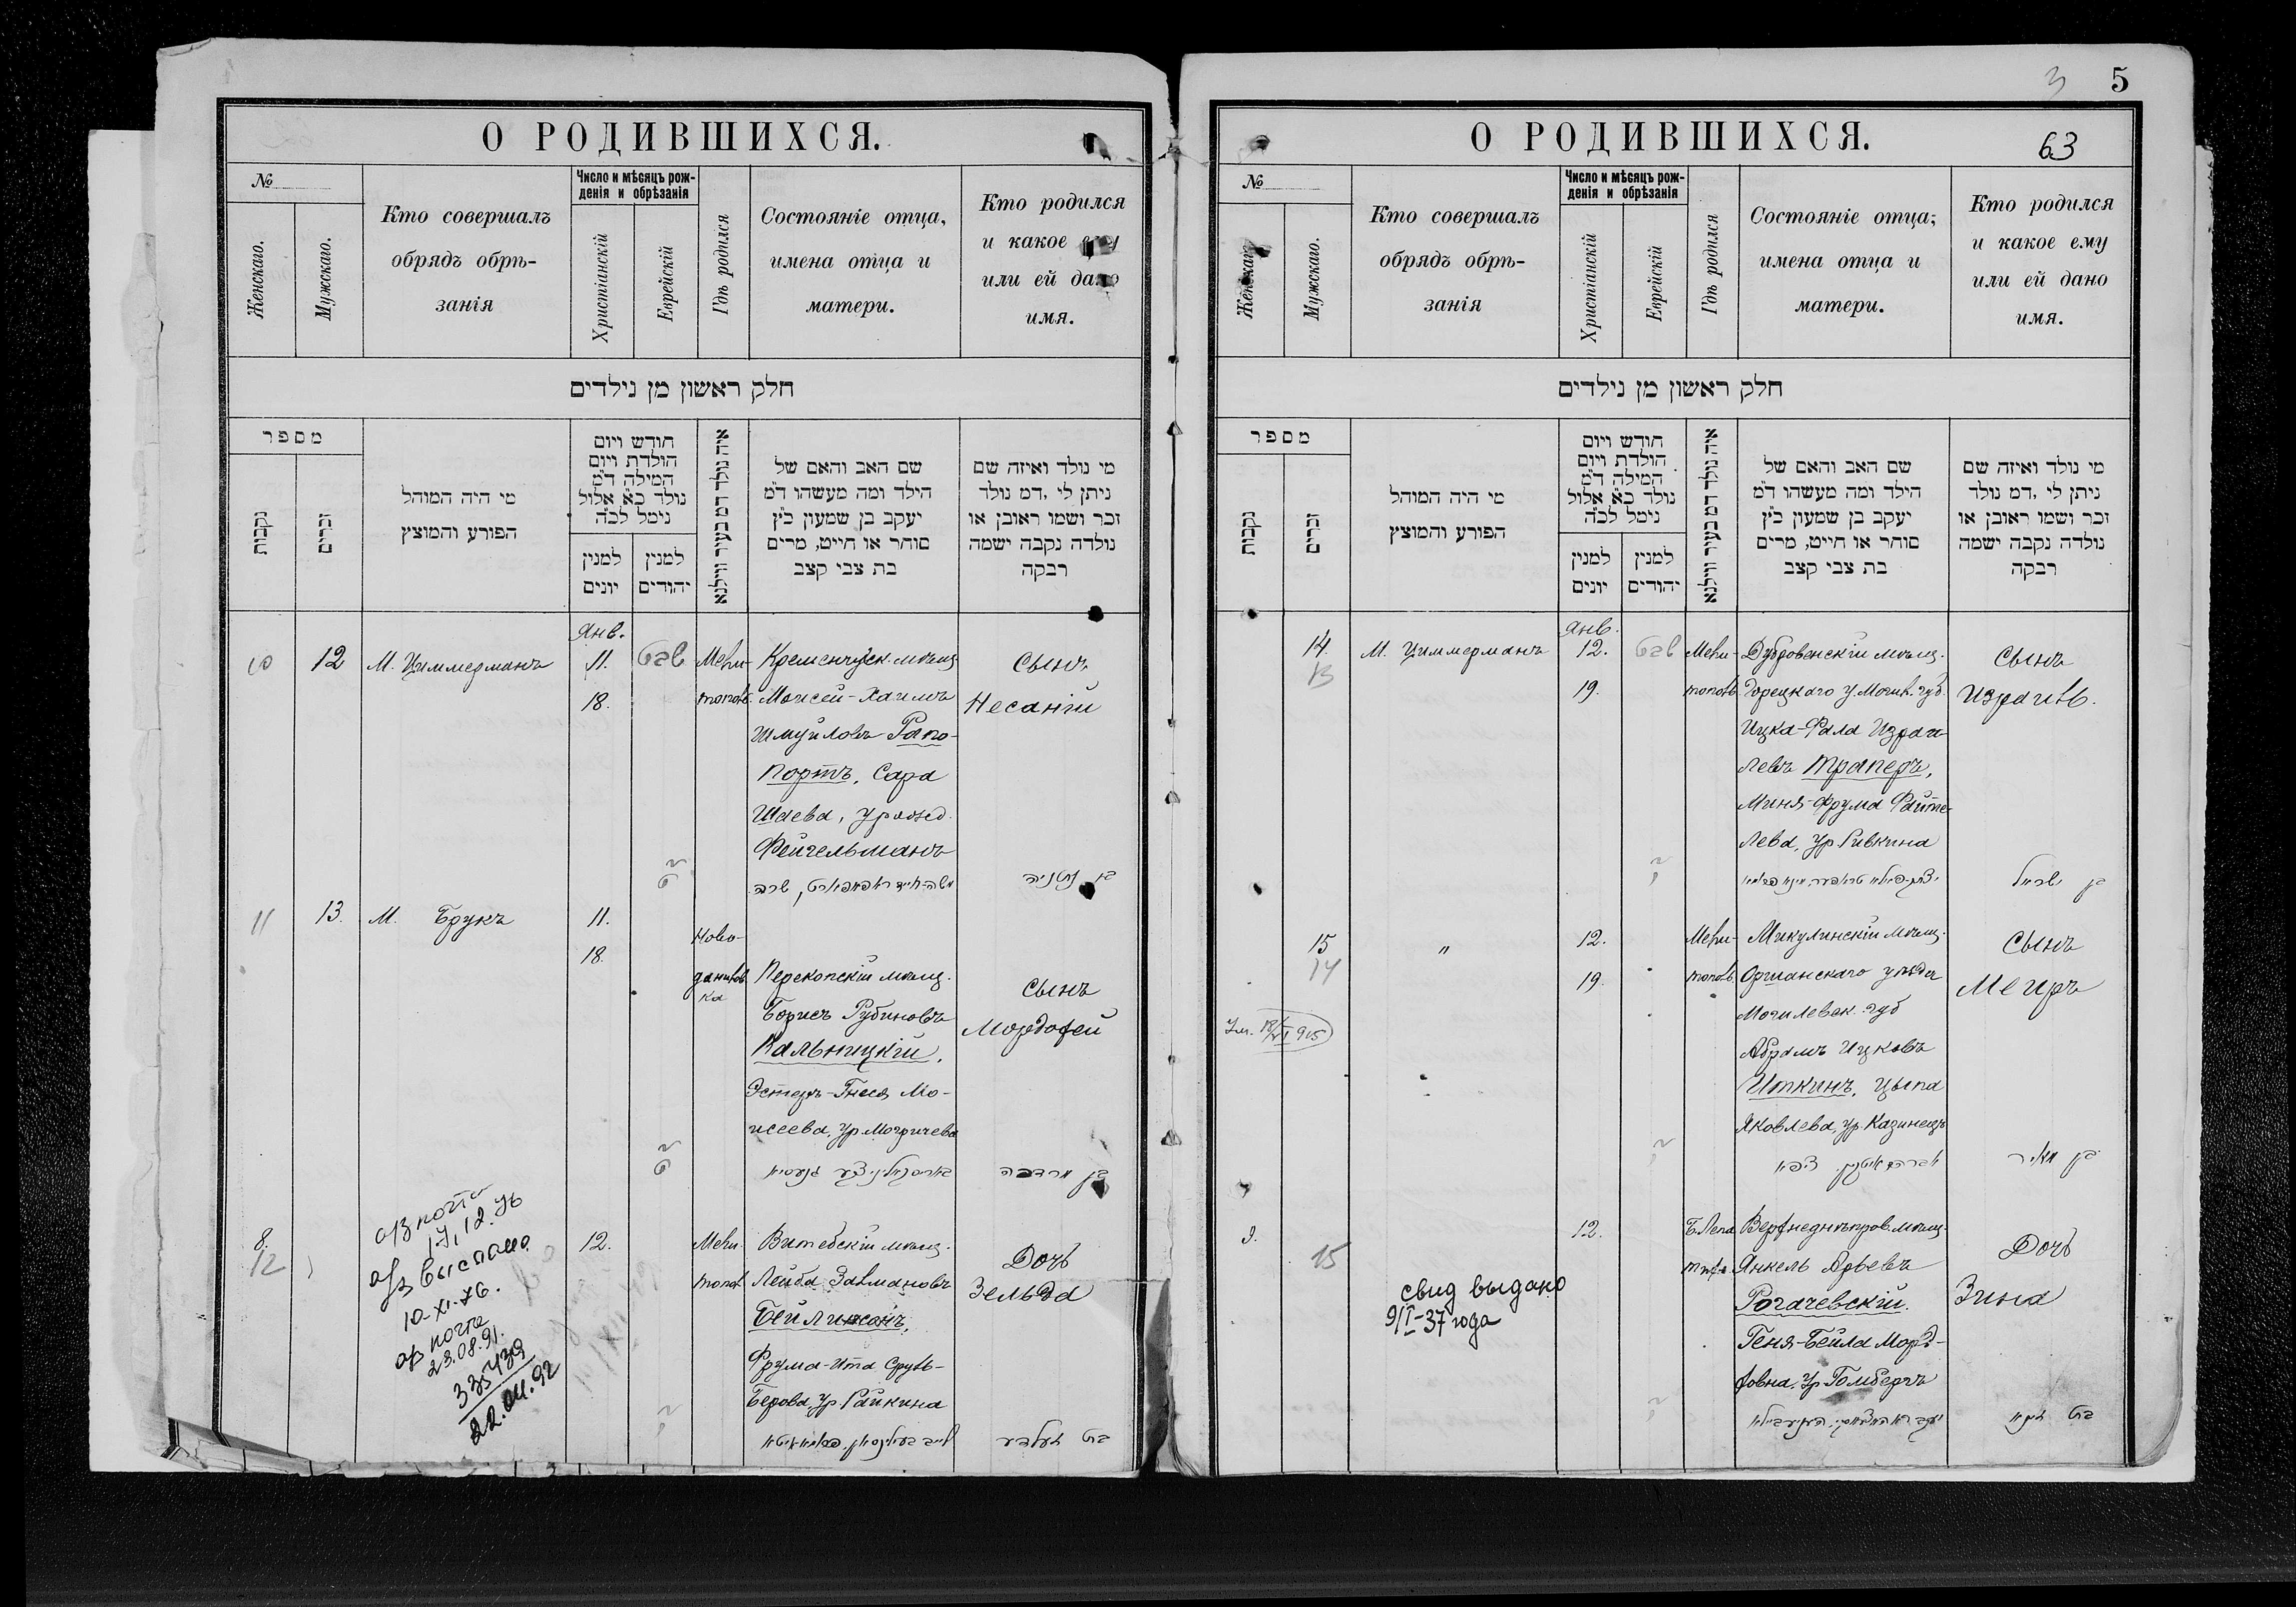 О РОДИВШИХСЯ.
№
Женскаго.
Мужскаго.
Кто совершалъ
обрядъ обрѣ-
занія
Число и мѣсяцъ рож-
денія и обрѣзанія
Христіанскій
Еврейскій
Гдѣ родился
Состояніе отца,
имена отца и
матери.
Кто родился
и какое ему
или ей дано
имя.
חלק ראשון מן נילדים
מספר
נקבות
זכרים
מי היה המוהל
הפורע והמוצץ
חודש ויום
הולדת ויום
המילה ד״מ
נולד כ״א אלול
נימל לכ״ה
למנין
יונים
למנין
יהודים
איה נולד דמ בעיר ווילנא
שם האב והאם של
הילד ומה מעשהו ד״מ
יעקב בן שמעון כ״ץ
סוחר או חייט, מרים
בת צבי קצב
מי נולד ואיזה שם
ניתן לי, דמ נולד
זכר ושמו ראובן או
נולדה נקבה ישמה
רבקה
10
12
М. Циммерманъ
Янв.
11.
18.
שבט
Мели-
топол.
Кременчугск. мѣщ
Моисей-Хаимъ
Шмуйловъ Рапо-
портъ, Сара
Шаева, урожд.
Фейгельманъ
Сынъ
Несаніи
בן נתניה
11
13.
М. Брукъ
11.
18.
Ново-
данилов
ка
Перекопскій мѣщ.
Борисъ Рубиновъ
Кальницкій,
Эстеръ-Гнеся Мо-
исеева, ур. Могричева
Сынъ
Мордофей
בן מרדכה
8.
12
17.12.
выслано
10-XI-76.
23.08.91.
335439
22.04.92
12.
Мели
топол
Витебскій мѣщ.
Лейба Залмановъ
Бейлинсонъ,
Фрума-Ита Сруль-
Берова, ур. Райкина
Дочь
Зельда
בת זעלדע
3
5
О РОДИВШИХСЯ.
63
№
Женскаго
Мужскаго.
Кто совершалъ
обрядъ обрѣ-
занія
Число и мѣсяцъ рож-
денія и обрѣзанія
Христіанскій
Еврейскій
Гдѣ родился
Состояніе отца,
имена отца и
матери.
Кто родился
и какое ему
или ей дано
имя.
חלק ראשון מן נילדים
מספר
נקבות
זכרים
מי היה המוהל
הפורע והמוצץ
חודש ויום
הולדת ויום
המילה ד״מ
נולד כ״א אלול
נימל לכ״ה
למנין
יונים
למנין
יהודים
איה נולד דמ בעיר ווילנא
שם האב והאם של
הילד ומה מעשהו ד״מ
יעקב בן שמעון כ״ץ
סוחר או חייט, מרים
בת צבי קצב
מי נולד ואיזה שם
ניתן לי, דמ נולד
זכר ושמו ראובן או
נולדה נקבה ישמה
רבקה
14.
13
М. Циммерманъ
Янв.
12.
19.
שבט
Мели-
топол.
Дубровенскій мѣщ.
Горецкаго у. Могил. губ.
Ицка-Фала Израи-
левъ Траперъ,
Миня-Фрума Файте-
лева, ур. Ривкина
Сынъ
Израиль.
בן ישראל
15
14
"
12.
19.
Мели-
топол.
Микулинскій мѣщ.
Оршанскаго уѣзда
Могилевск. губ
Абрамъ Ицковъ
Иткинъ, Цыпа
Яковлева, ур. Казинецъ
Сынъ
Меиръ
בן מאיר
9.
15
свид выдано
9/I-37 года
12.
Б. Лепа
тиха
Верхнеднѣпров. мѣщ.
Янкель Арьевъ
Рогачевскій.
Геня-Бейла Морд-
ховна, ур. Гомбергъ
Дочь
Зина
בת זינא